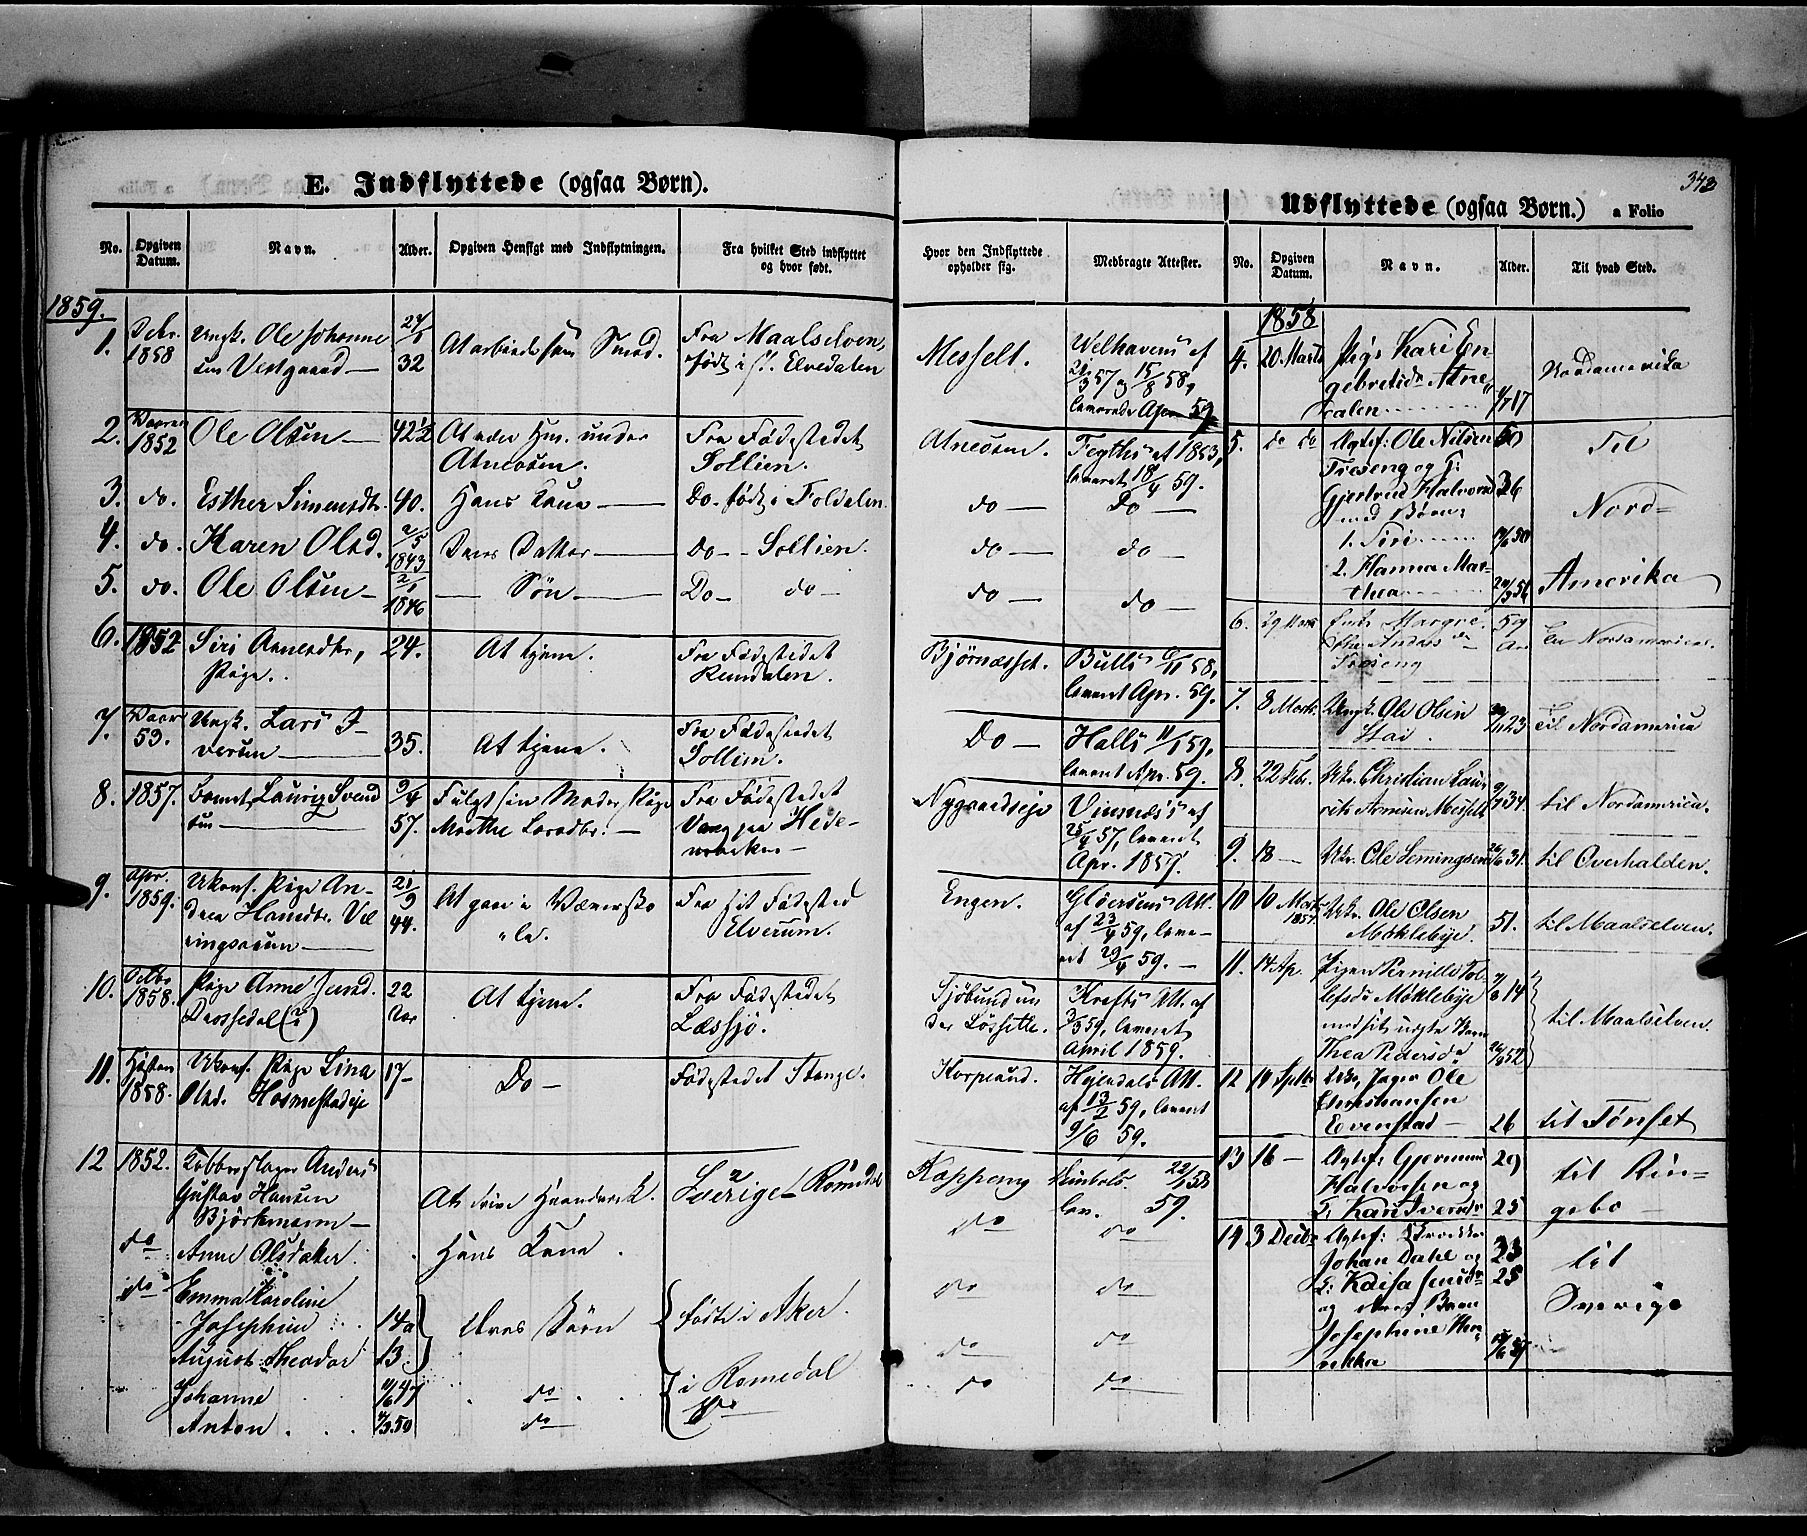 E. Indflyttede (ogsaa Børn).
No.
Opgiven Datum.
Navn.
Alder.
Opgiven Hensigt med Indflytningen.
Fra hvilket Sted indflyttet
og hvor født.
Hvor den Indflyttede
opholder sig.
Medbragte Attester.
1859.
1. Debr. 1858 Ungk. Ole Johanne
sen Vestgaard 32 At arbeide som Smed. Fra Maalselven,
født i St. Elvedalen Messelt. Welhavens af
57 og 15/8 58,
leverede Apr. 59
2. Vaaren 1852 Ole Olsen 42½ At være Huus. under
Atneosen. Fra Fødestedet
Sollien. Atneosen. af 1853,
leveret 18/4 59.
3. do. Esther Simensdtr. 40. Hans Kone Do. født i Foldalen. do Do
4. do. Karen Olsd. 2/5 1843 Deres Datter Do Sollien. do do
5. do. Ole Olsen 2/1 1846 Søn Do do do do
6. 1852 Siri Arnesdtr,
Pige. 24. At tjene. Fra Fødestedet
Rendalen. Bjørnæsset. Bulls 6/11 58,
leveret Apr. 59.
7. Vaar 53. Ungk. Lars I-
versen 35. At tjene. Fra Fødestedet
Sollien. Do Halls 11/1 59,
leveret Apr. 59.
8. 1857. Barnet Lauriz Svend
sen 9/4 57. Fulgt sin Moder, Pige
Marthe Larsdtr. Fra Fødestedet
Vang paa Hede-
marken Nygaardseje af
25/4 57, leveret
Apr. 1859.
9. Apr. 1859. Ukonf. Pige An-
drea Hansdtr. Væ
ringsaasen 21/9 44. At gaae i
Fra sit Fødested
Elverum. Engen. Gløersens Att.
af 23/4 59, leve-
ret 29/4 59.
10. Octbr 1858. Pige Anne Jensd.
22 Aar At tjene. Fra Fødestedet
Læssjø. Sjøbund un
der Løssette. Krafts Att. af
3/3 59, leveret
April 1859.
11. Høsten 1858. Ukonf. Pige Lina
Olsd. Hosmestadeje 17 Do Fødestedet Stange. Korpsund. Att.
af 13/2 59, leveret
9/6 59.
12 1852. Kobberslager Anders
Gustav Hansen
Bjørkmann At drive Haandverk. Sverige Romedal Koppang 22/1 58
lev. 59.
do Anne Olsdaker. Hans Kone. do do
do Emma Karoline
Josephine 14a Deres Børn fødte i Aker. do do
August Theodor 13. do do
Johanne 11/6 47 do i Romedal do do
Anton 4/3 50 do Do
343
Udflyttede (ogsaa Børn.) a Folio
No.
Opgiven Datum.
Navn.
Alder.
Til hvad Sted.
1858
4. 20 Marts Pige Kari En
gebretsdr Atne-
dalen 17 Nordamerika
5. do do Ole Nilsen 50
Tresseng og
Gjertrud Halvorsd 36
med Børn:
1. Siri 50
2. Hanna Mar-
thea 56
Til
Nord-
Amerika
6. 29 Marts Enke Margre
the Andersdr
Tresseng 59 Aar Til Nordamerica.
7. 8 Marts. Ungk. Ole Olsen
Stai. 23 Til Nordamerica
8. 22 Feb. Ukr. Christian Lau-
rits Arnesen Messelt 34. til Nordamerica.
9. 18 Ukr. Ole Semmingsen 26/6 31. til Overhalden.
10 10 Marts 1857. Ukr. Ole Olsen
Møklebye. 51. til Maalselven.
11. 14 Ap. Pigen Pernille Tol
lefsdr Møklebye 14
med sit uægte Barn
Thea Pedersdr 52 til Maalselven.
12 14 Septbr Ukr. Jæger Ole
Christiansen
Evenstad 26 til Tønset
13 16 Agtef. Gjermund 29
Halvorsen og
K. Kari Iversdr 25 til Rin-
gebo
14 3 Decbr Agtef: Skredder
Johan Dahl og 23
K: Kaisa Jensdr 25
og deres Barn
Josephine Hen-
rikka til
Sverige